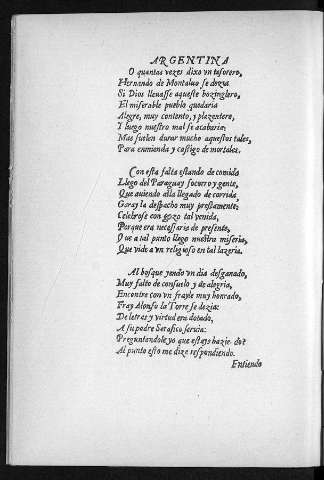 ARGENTINA
O quantas vezes dixo vn tesorero,
Hernando de Montaluo se dezia
Si Dios lleuasse aqueste bozinglero,
El miserable pueblo quedaria
Alegre, muy contento, y plazentero,
Y luego nuestro mal se acabaria:
Mas suelen durar mucho aquestos tales,
Para enmienda y castigo de mortales.
Con esta falta estando de comida
Llego del Paraguay socorro y gente,
Que auiendo alla llegado de corrida,
Garay la despacho muy prestamente:
Celebrose con gozo tal venida,
Porque era necessaria de presente,
Que a tal punto llego nuestra miseria,
Que vide a vn religioso en tal lazeria.
Al bosque yendo vn dia desganado,
Muy falto de consuelo y de alegria,
Encontre con vn frayle muy honrado,
Fray Alonso la Torre se dezia:
De letras y virtud era dotado,
A su padre Serafico seruia:
Preguntandole yo que estays hazie do?
Al punto esto me dize respondiendo.
Entiendo